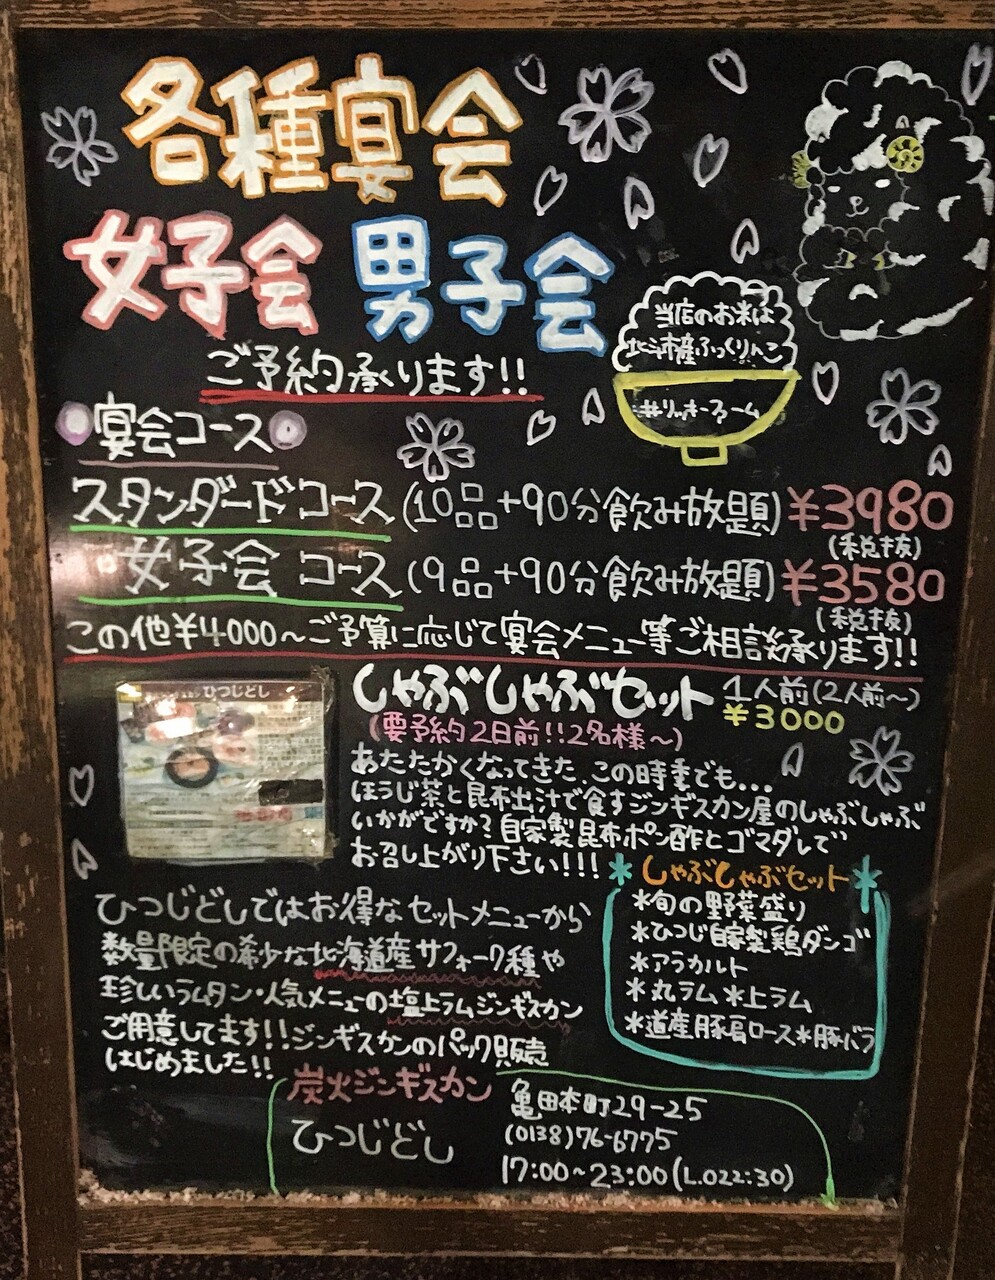 各種宴会
女子会 男子会
ご予約承ります!!
当店のお米は
北海道産ふっくりんこ
#リッキーファーム
宴会コース
スタンダードコース(10品+90分飲み放題)¥3980
(税抜)
女子会 コース(9品+90分飲み放題)¥3580
(税抜)
この他¥4000~ご予算に応じて宴会メニュー等ご相談承ります!!
ひつじどし
しゃぶしゃぶセット 1人前(2人前~)
¥3000
(要予約2日前!!2名様~)
あたたかくなってきた、この時季でも...
ほうじ茶と昆布出汁で食すジンギスカン屋のしゃぶしゃぶ
いかがですか?自家製昆布ポン酢とゴマダレで
お召し上がり下さい!!!
*しゃぶしゃぶセット*
*旬の野菜盛り
*ひつじ自家製鶏ダンゴ
*アラカルト
*丸ラム *上ラム
*道産豚肩ロース*豚バラ
ひつじどしではお得なセットメニューから
数量限定の希少な北海道産サフォーク種や
珍しいラムタン・人気メニューの塩上ラムジンギスカン
ご用意してます!!ジンギスカンのパック販売
はじめました!!
炭火ジンギスカン
ひつじどし
亀田本町29-25
(0138)76-6775
17:00~23:00(L.O22:30)